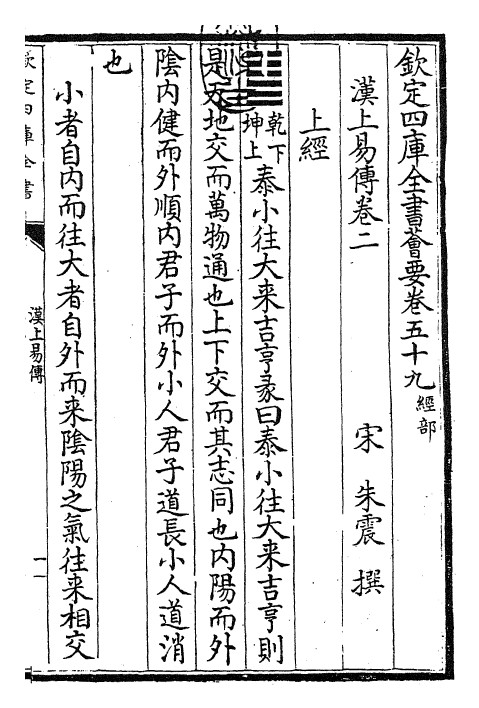 欽定四庫全書薈要卷五十九經部
漢上易傳卷二 宋 朱震 撰
上經
乾下坤上泰小往大来吉亨彖曰泰小往大来吉亨則
是天地交而萬物通也上下交而其志同也内陽而外
陰内健而外順内君子而外小人君子道長小人道消
也
小者自内而往大者自外而来陰陽之氣往来相交
欽定四庫全書
漢上易傳
一